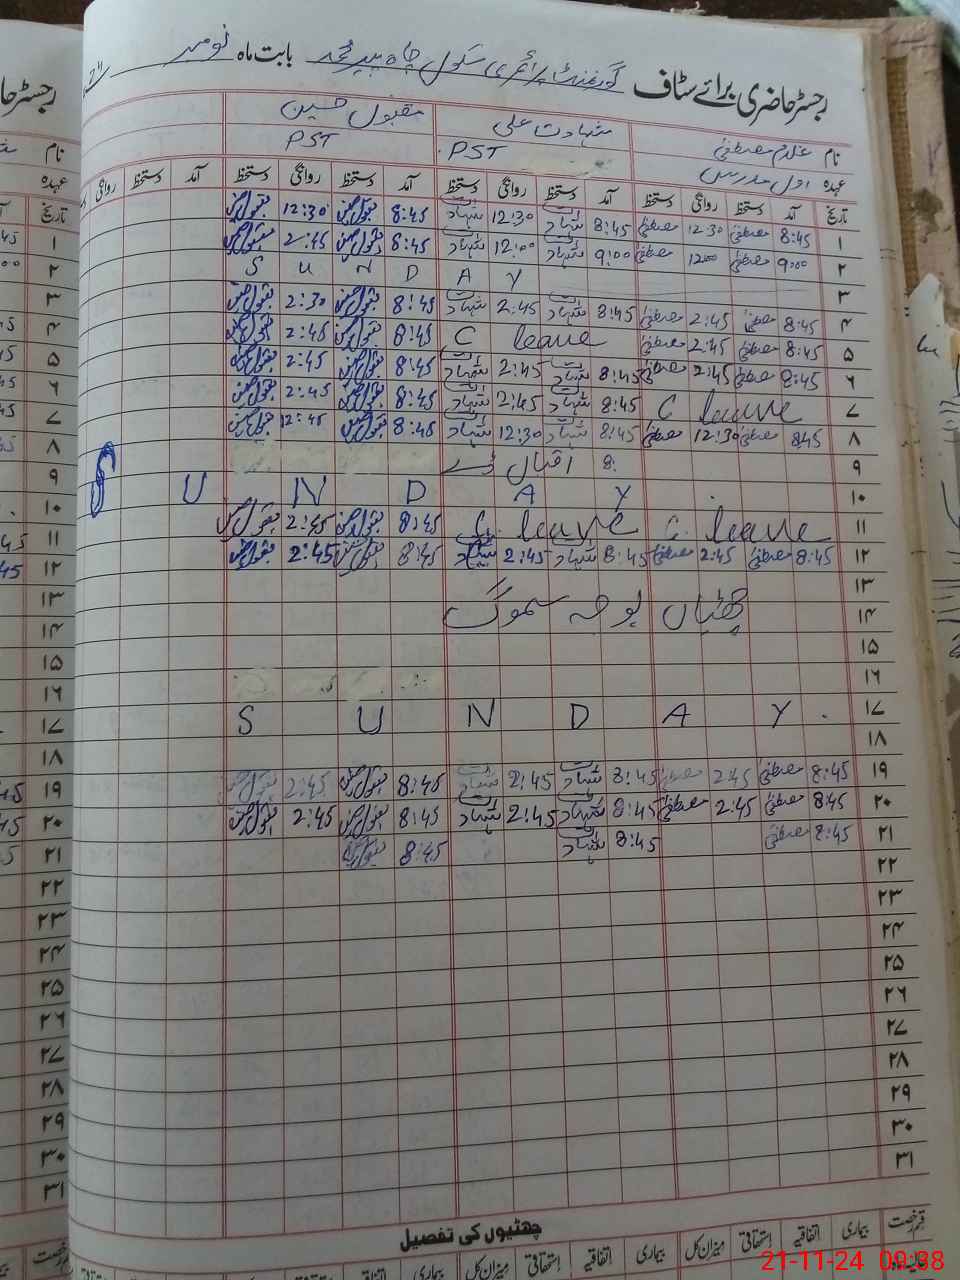 رجسٹر حاضری برائے سٹاف گورنمنٹ پرائمری سکول چاہ پیر محمد بابت ماہ نومبر
نام غلام مصطفیٰ شہادت علی مقبول حسین
عہدہ اول مدرس PST PST
تاریخ آمد دستخط روانگی دستخط آمد دستخط روانگی دستخط آمد دستخط روانگی دستخط آمد دستخط روانگی
۱ 8:45 مصطفیٰ 12:30 مصطفیٰ 8:45 شہادت 12:30 شہادت 8:45 مقبول حسین 12:30 مقبول حسین
۲ 9:00 مصطفیٰ 12:00 مصطفیٰ 9:00 شہادت 12:00 شہادت 8:45 مقبول حسین 2:45 مقبول حسین
۳ S U N D A Y
۴ 8:45 مصطفیٰ 2:45 مصطفیٰ 8:45 شہادت 2:45 شہادت 8:45 مقبول حسین 2:30 مقبول حسین
۵ 8:45 مصطفیٰ 2:45 مصطفیٰ C leave 8:45 مقبول حسین 2:45 مقبول حسین
۶ 8:45 مصطفیٰ 2:45 مصطفیٰ 8:45 شہادت 2:45 شہادت 8:45 مقبول حسین 2:45 مقبول حسین
۷ C leave 8:45 شہادت 2:45 شہادت 8:45 مقبول حسین 2:45 مقبول حسین
۸ 8:45 مصطفیٰ 12:30 مصطفیٰ 8:45 شہادت 12:30 شہادت 8:45 مقبول حسین 12:45 مقبول حسین
۹ 8: اقبال ڈے
۱۰ S U N D A Y
۱۱ C. leave C. leave 8:45 مقبول حسین 2:45 مقبول حسین
۱۲ 8:45 مصطفیٰ 2:45 مصطفیٰ 8:45 شہادت 2:45 شہادت 8:45 مقبول حسین 2:45 مقبول حسین
۱۳
۱۴ چھٹیاں بوجہ سموگ
۱۵
۱۶
۱۷ S U N D A Y .
۱۸
۱۹ 8:45 مصطفیٰ 2:45 مصطفیٰ 8:45 شہادت 2:45 شہادت 8:45 مقبول حسین 2:45 مقبول حسین
۲۰ 8:45 مصطفیٰ 2:45 مصطفیٰ 8:45 شہادت 2:45 شہادت 8:45 مقبول حسین 2:45 مقبول حسین
۲۱ 8:45 مصطفیٰ 8:45 شہادت 8:45 مقبول حسین
۲۲
۲۳
۲۴
۲۵
۲۶
۲۷
۲۸
۲۹
۳۰
۳۱
چھٹیوں کی تفصیل
قسم رخصت بیماری اتفاقیہ استحقاقی میزان کل بیماری اتفاقیہ استحقاقی میزان کل بیماری اتفاقیہ استحقاقی
21-11-24 09:38